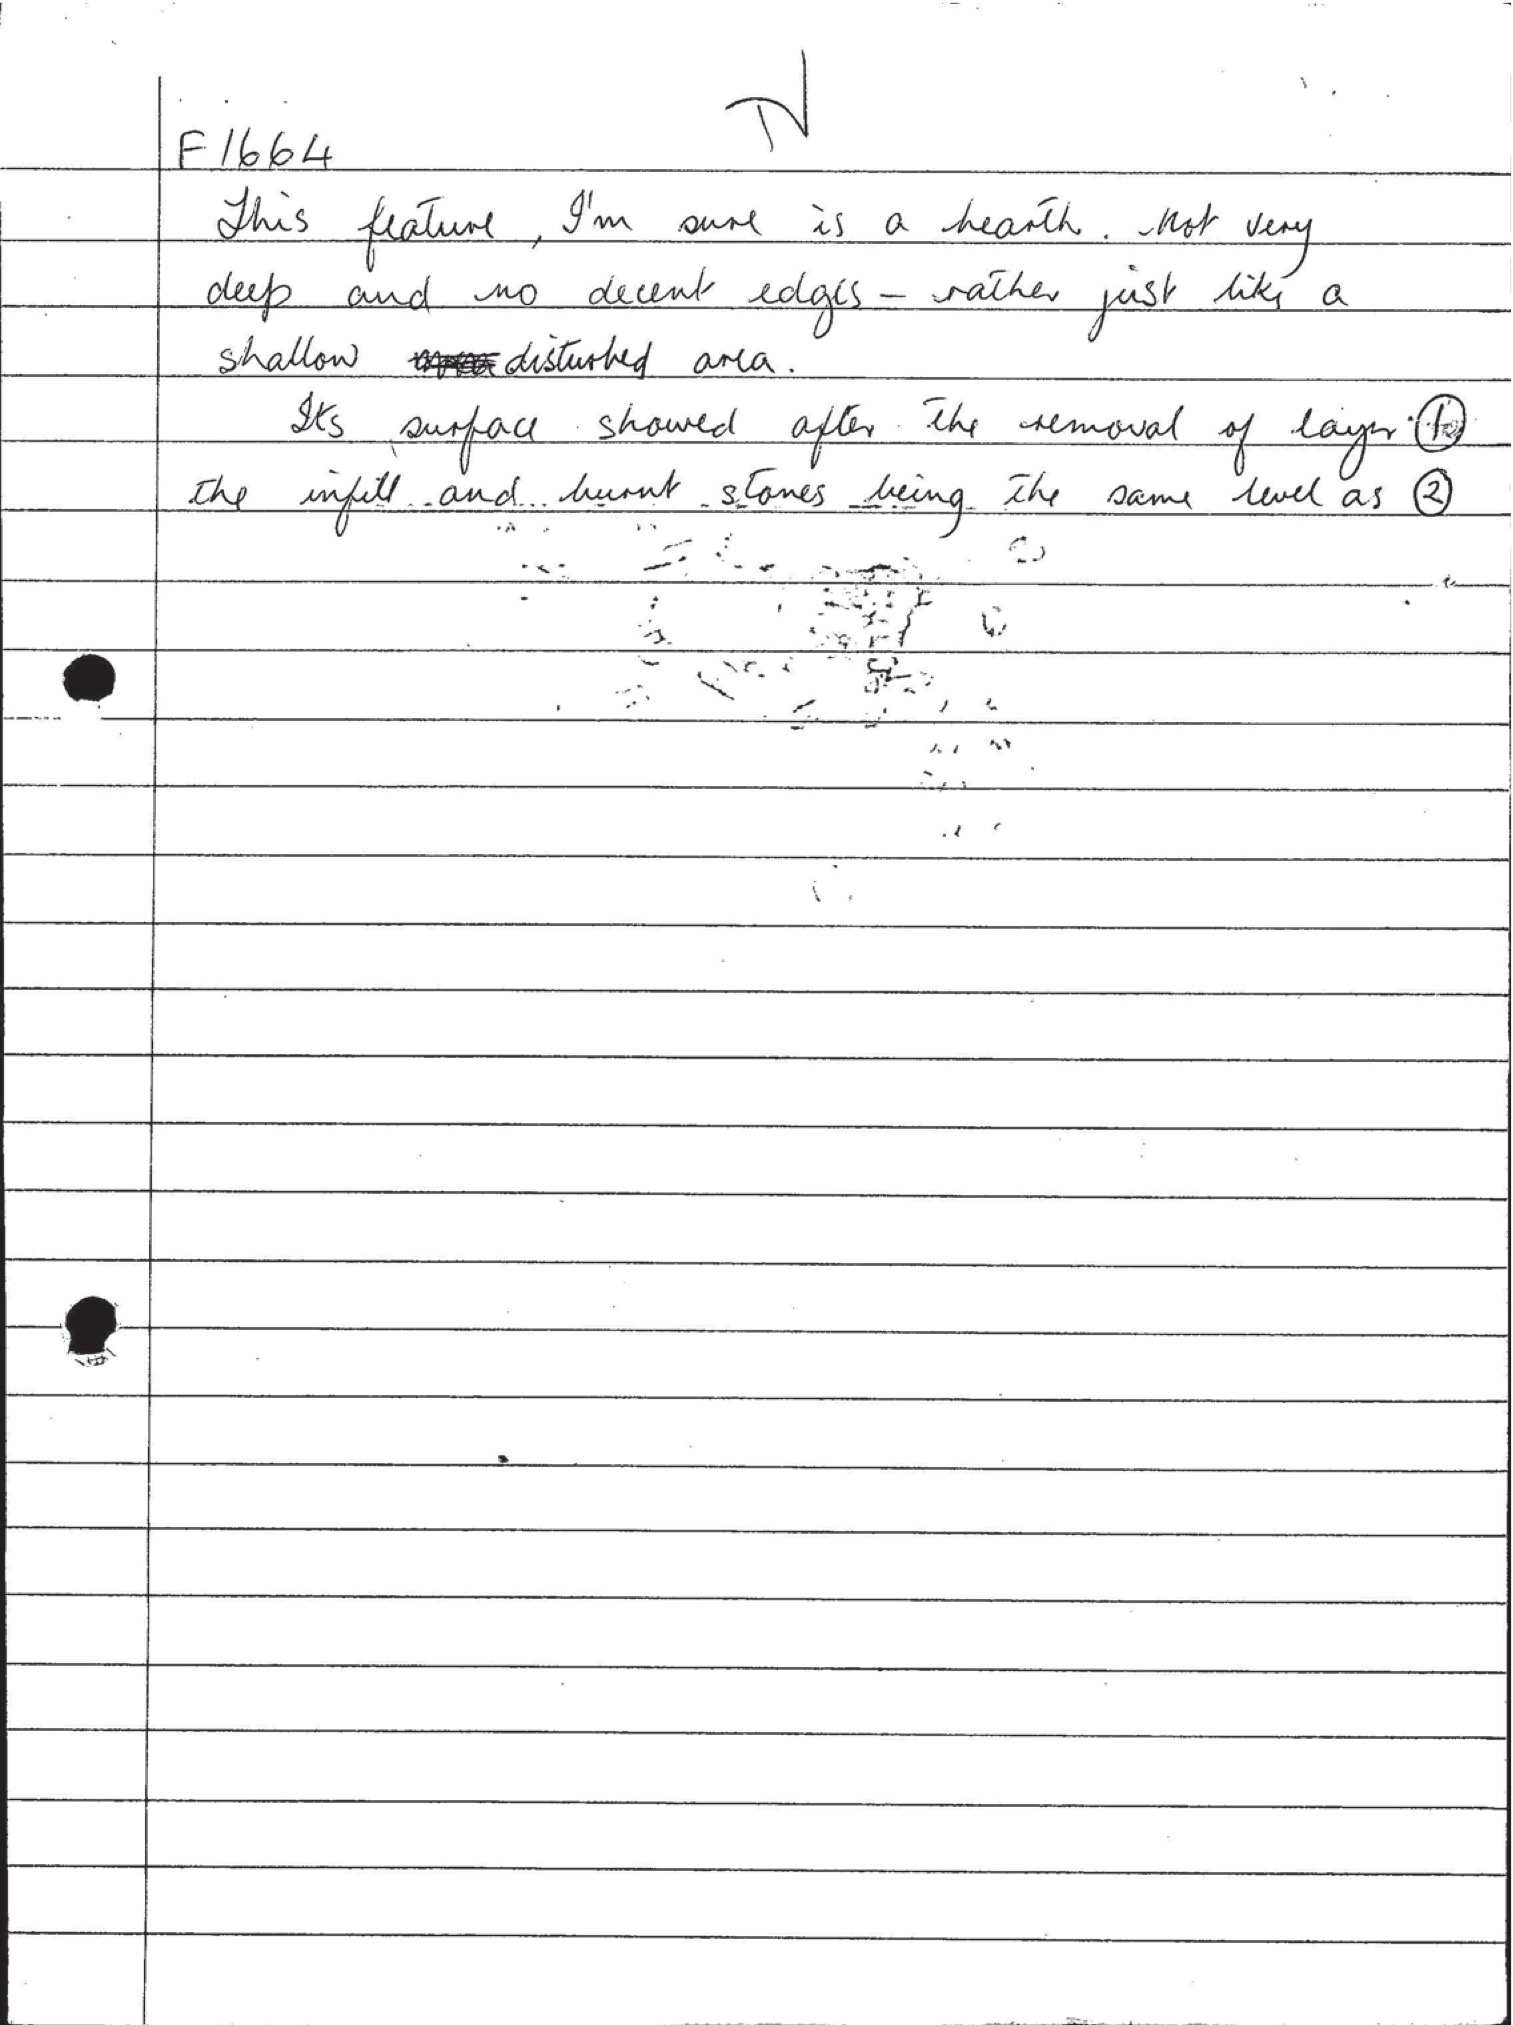 F1664
This feature, I'm sure is a hearth. Not very
deep and no decent edges - rather just like a
shallow disturbed area.
Its surface showed after the removal of layer ①
the infill and burnt stones being the same level as ②